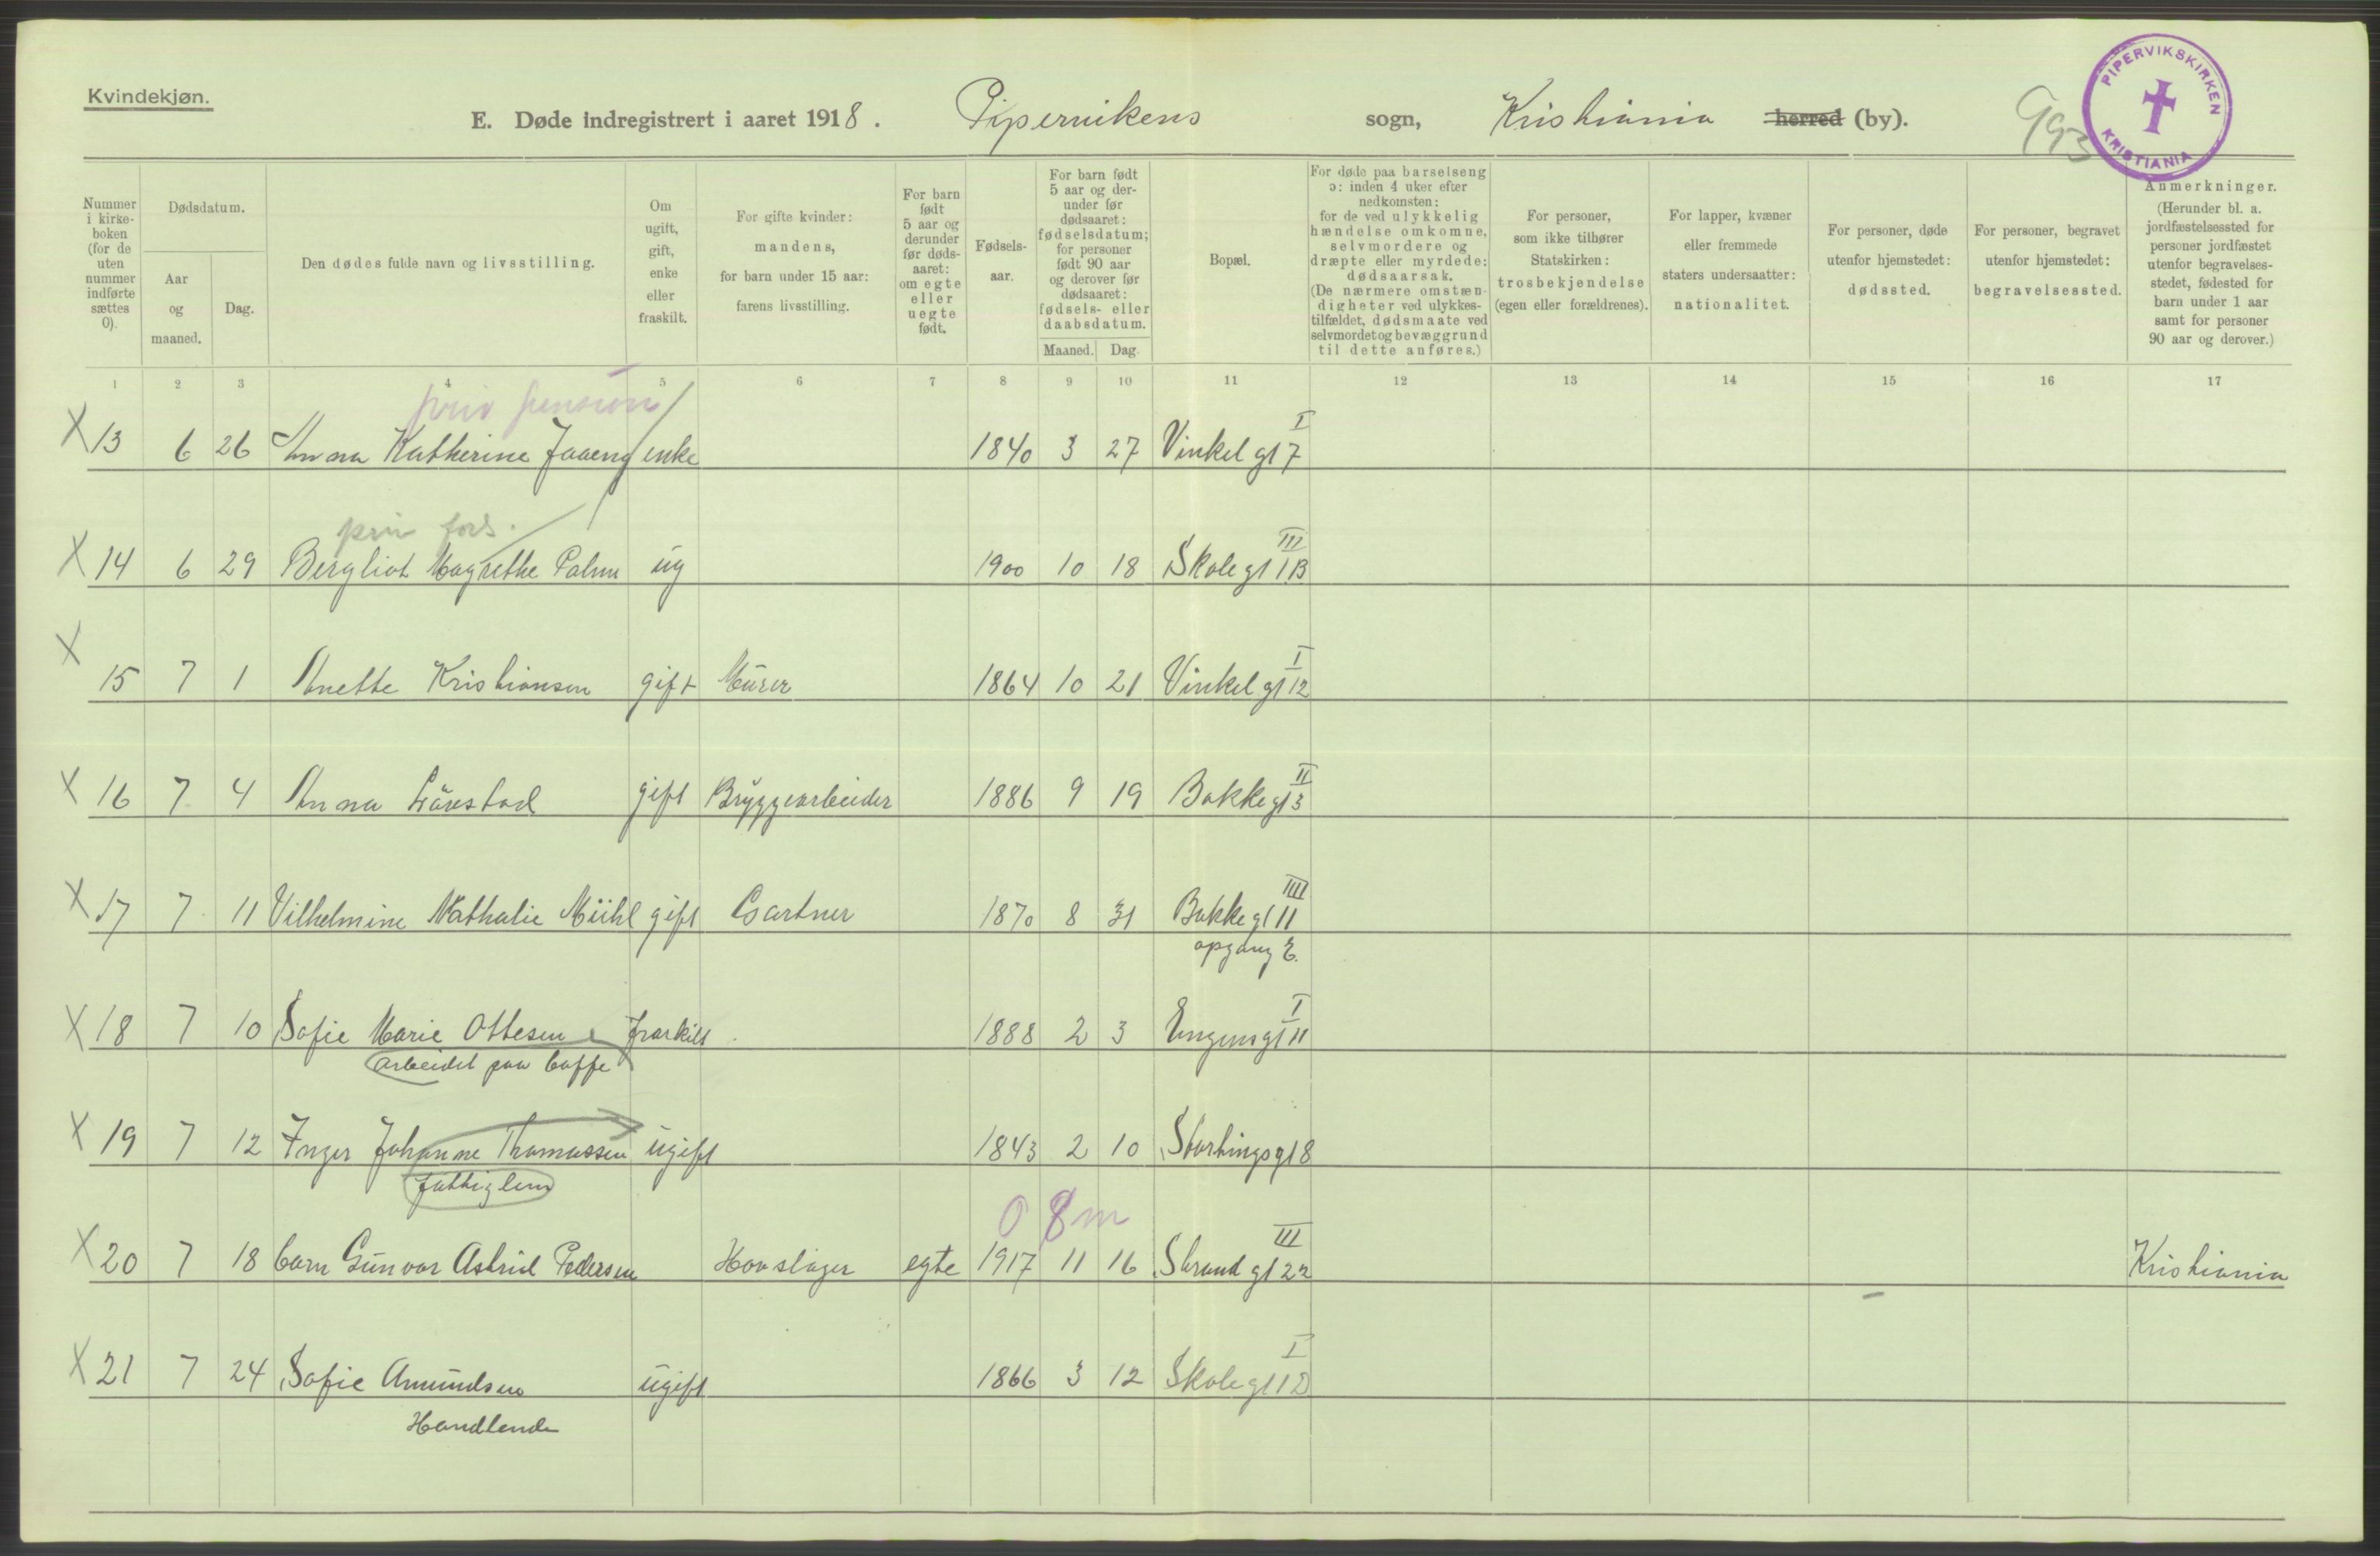 Kvindekjøn.
E. Døde indregistrert i aaret 1918. Pipervikens sogn, Kristiania herred (by).
993
PIPERVIKSKIRKEN KRISTIANIA
Nummer i kirke-boken (for de uten nummer indførte sættes 0).
Dødsdatum.
Aar og maaned.
Dag.
Den dødes fulde navn og livsstilling.
Om ugift, gift, enke eller fraskilt.
For gifte kvinder: mandens, for barn under 15 aar: farens livsstilling.
For barn født 5 aar og derunder før døds-aaret: om egte eller uegte født.
Fødsels-aar.
For barn født 5 aar og der-under før dødsaaret: fødselsdatum; for personer født 90 aar og derover før dødsaaret: fødsels- eller daabsdatum.
Maaned. Dag.
Bopæl.
For døde paa barselseng ɔ: inden 4 uker efter nedkomsten: for de ved ulykkelig hændelse omkomne, selvmordere og dræpte eller myrdede: dødsaarsak. (De nærmere omstæn-digheter ved ulykkes-tilfældet, dødsmaate ved selvmordet og bevæggrund til dette anføres.)
For personer, som ikke tilhører Statskirken: trosbekjendelse (egen eller forældrenes).
For lapper, kvæner eller fremmede staters undersaatter: nationalitet.
For personer, døde utenfor hjemstedet: dødssted.
For personer, begravet utenfor hjemstedet: begravelsessted.
Anmerkninger. (Herunder bl. a. jordfæstelsessted for personer jordfæstet utenfor begravelses-stedet, fødested for barn under 1 aar samt for personer 90 aar og derover.)
1 2 3 4 5 6 7 8 9 10 11 12 13 14 15 16 17
priv pension
X 13 6 26 Anna Katherine Jaaeng enke 1840 3 27 Vinkel gt 7 I
priv fors.
X 14 6 29 Bergliot Magrethe Palm ug 1900 10 18 Skole gt 1 B III
X 15 7 1 Anette Kristiansen gift Murer 1864 10 21 Vinkel gt 12 I
X 16 7 4 Anna Liavstad gift Bryggearbeider 1886 9 19 Bakke gt 3 II
X 17 7 11 Vilhelmine Nathalie Mühl gift Gartner 1870 8 31 Bakke gt 11 III
opgang E.
X 18 7 10 Sofie Marie Ottesen fraskilt 1888 2 3 Engens gt 11 I
arbeidet paa Caffe
X 19 7 12 Inger Johanne Thomassen ugift 1843 2 10 Stortings gt 8
fattiglem
0 8 m
X 20 7 18 barn Gunvor Astrid Pedersen Hovslager egte 1917 11 16 Strand gt 22 III Kristiania
X 21 7 24 Sofie Amundsen ugift 1866 3 12 Skole gt 1 D I
Handlende